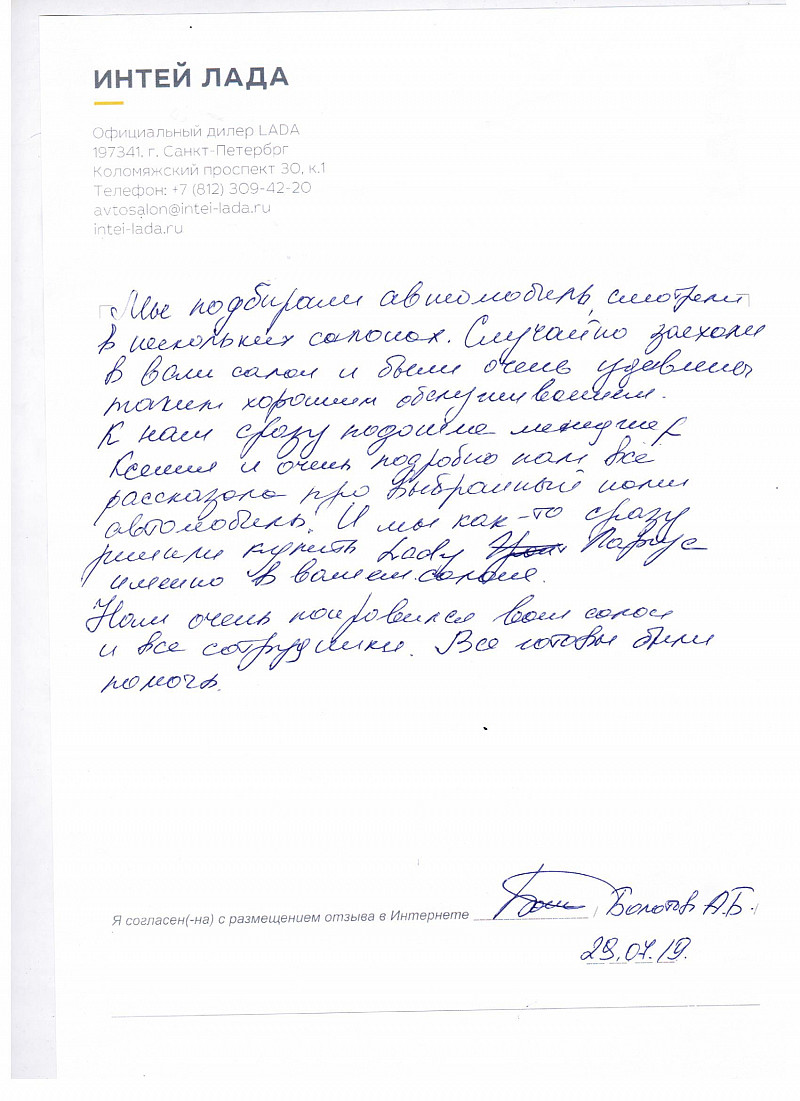 ИНТЕЙ ЛАДА
Официальный дилер LADA
197341, г. Санкт-Петербог
Коломяжский проспект 30, к.1
Телефон: +7 (812) 309-42-20
avtosalon@intei-lada.ru
intei-lada.ru
Мы подбирали автомобиль, смотрели
в нескольких салонах. Случайно заехали
в ваш салон и были очень удивлены
таким хорошим обслуживанием.
К нам сразу подошла менеджер
Ксения и очень подробно нам всё
рассказала про выбранный нами
автомобиль. И мы как-то сразу
решили купить Lady Ларгус
именно в вашем салоне.
Нам очень понравился ваш салон
и все сотрудники. Все готовы были
помочь.
Я согласен(-на) с размещением отзыва в Интернете Болотов А.Б.
29.07.19.